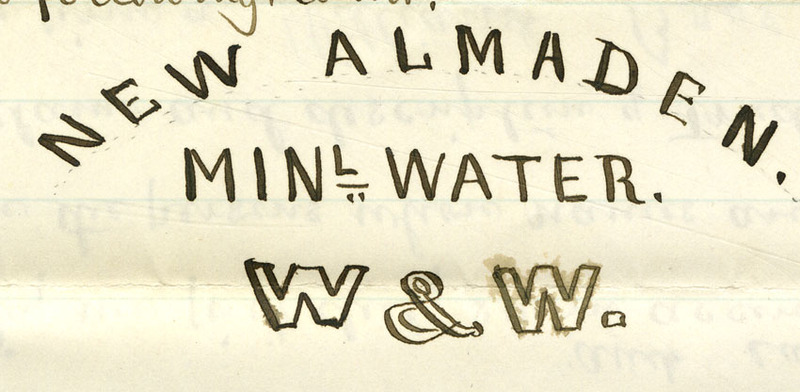 NEW ALMADEN.
MINL WATER.
W & W.